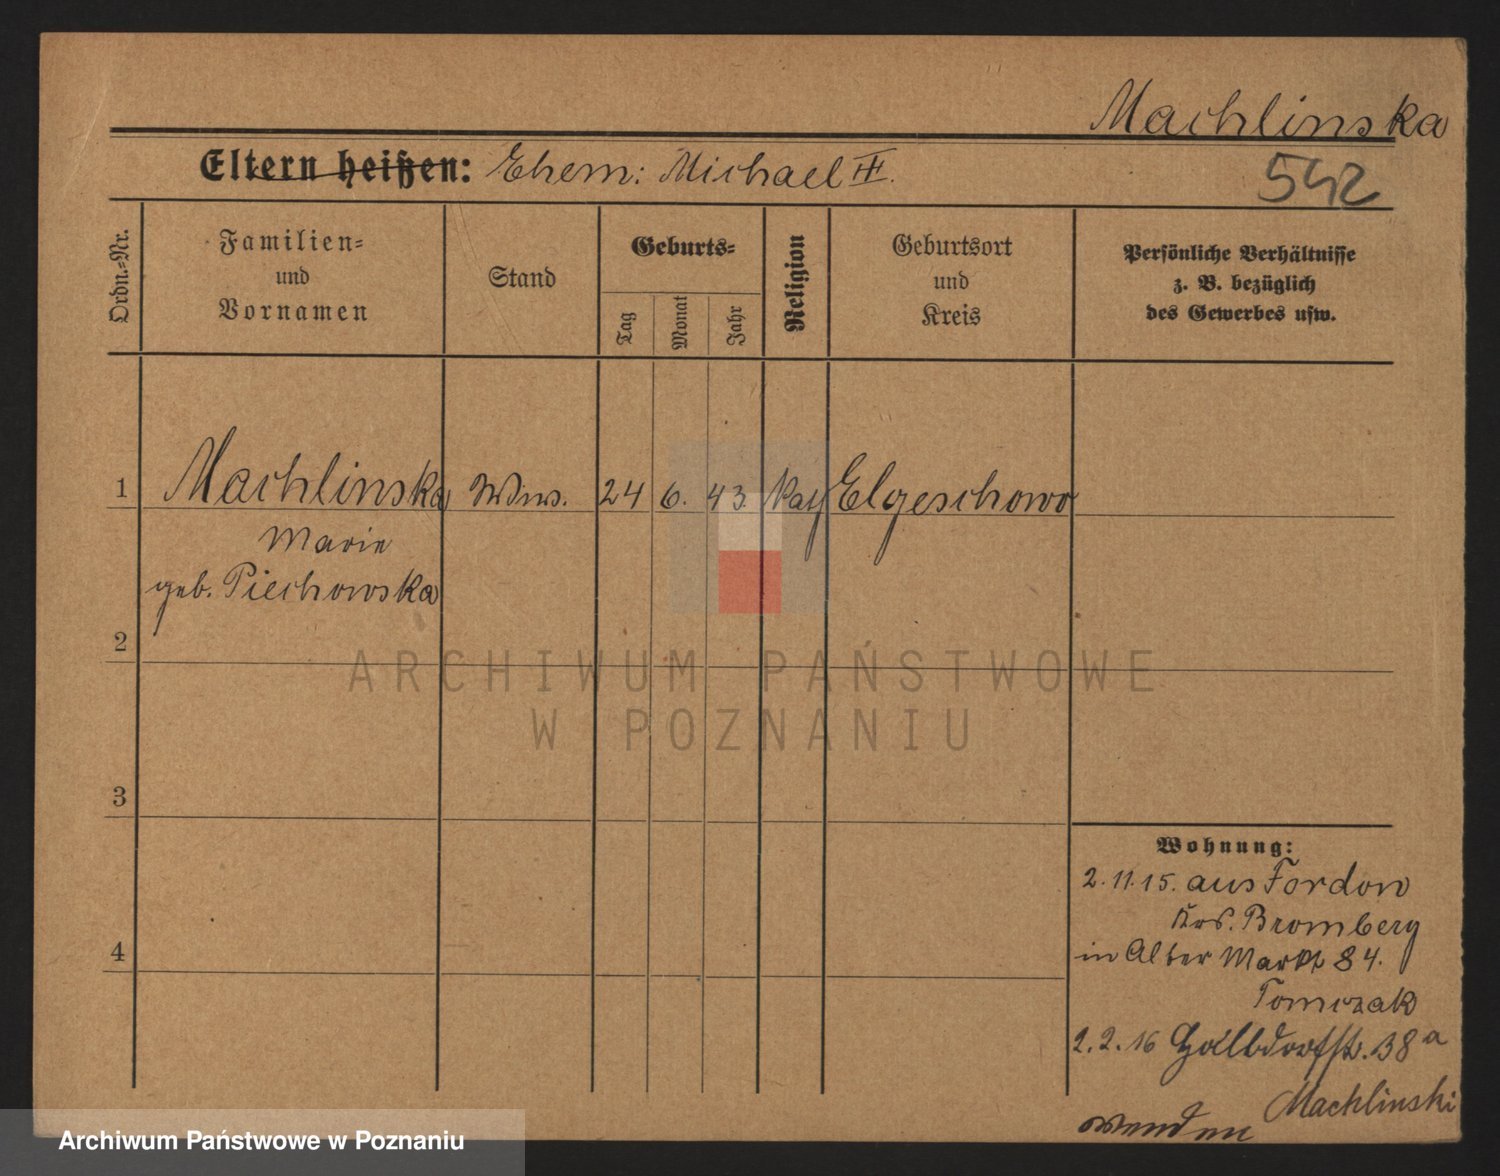 Machlinska
Eltern heißen: Ehem: Michael III.
542
Ordn.-Nr.
Familien-
und
Vornamen
Stand
Geburts-
Tag
Monat
Jahr
Religion
Geburtsort
und
Kreis
Persönliche Verhältnisse
z. B. bezüglich
des Gewerbes usw.
1 Machlinska Wwe. 24 6. 43. Kath Elgeschowo
Marie
geb. Piechowska
2
ARCHIWUM PAŃSTWOWE
W POZNANIU
3
Wohnung:
2.11.15. aus Fordon
Krs. Bromberg
4
in Alter Markt 84.
Tomczak
2.2.16 38a
Machlinski
wenden
Archiwum Państwowe w Poznaniu